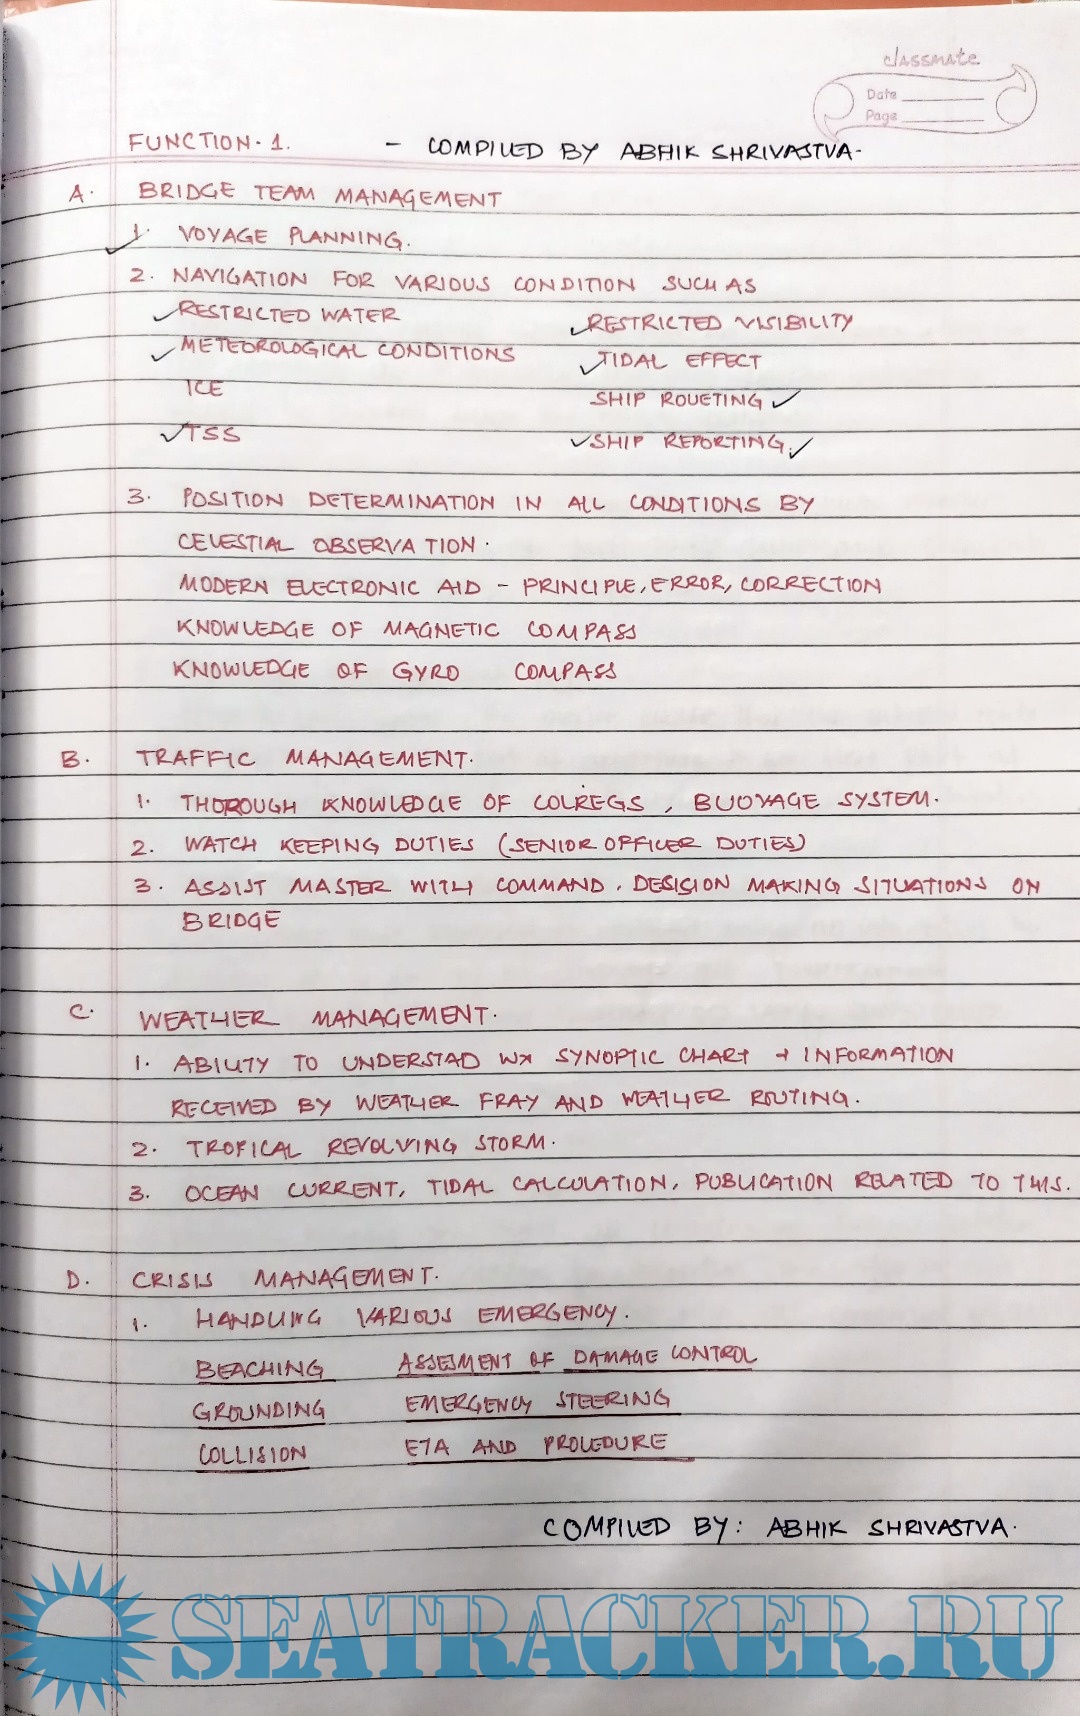 classmate
Date
Page
FUNCTION. 1. - COMPILED BY ABHIK SHRIVASTVA.
A. BRIDGE TEAM MANAGEMENT
✓1. VOYAGE PLANNING.
2. NAVIGATION FOR VARIOUS CONDITION SUCH AS
✓RESTRICTED WATER ✓RESTRICTED VISIBILITY
✓METEOROLOGICAL CONDITIONS ✓TIDAL EFFECT
ICE SHIP ROUETING ✓
✓TSS ✓SHIP REPORTING. ✓
3. POSITION DETERMINATION IN ALL CONDITIONS BY
CELESTIAL OBSERVATION.
MODERN ELECTRONIC AID - PRINCIPLE, ERROR, CORRECTION
KNOWLEDGE OF MAGNETIC COMPASS
KNOWLEDGE OF GYRO COMPASS
B. TRAFFIC MANAGEMENT.
1. THOROUGH KNOWLEDGE OF COLREGS, BUOYAGE SYSTEM.
2. WATCH KEEPING DUTIES (SENIOR OFFICER DUTIES)
3. ASSIST MASTER WITH COMMAND. DESISION MAKING SITUATIONS ON
BRIDGE
C. WEATHER MANAGEMENT.
1. ABILITY TO UNDERSTAD WX SYNOPTIC CHART + INFORMATION
RECEIVED BY WEATHER FRAY AND WEATHER ROUTING.
2. TROPICAL REVOLVING STORM.
3. OCEAN CURRENT, TIDAL CALCULATION, PUBLICATION RELATED TO THIS.
D. CRISIS MANAGEMENT.
1. HANDLING VARIOUS EMERGENCY.
BEACHING ASSESMENT OF DAMAGE CONTROL
GROUNDING EMERGENCY STEERING
COLLISION ETA AND PROCEDURE
COMPILED BY: ABHIK SHRIVASTVA.
SEATRACKER.RU